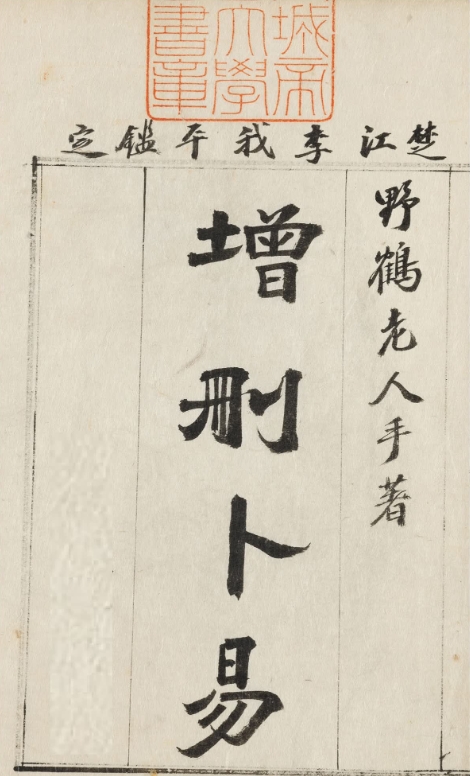 城帝
大學
書章
楚江李我平鑑定
野鶴老人手著
增刪卜易